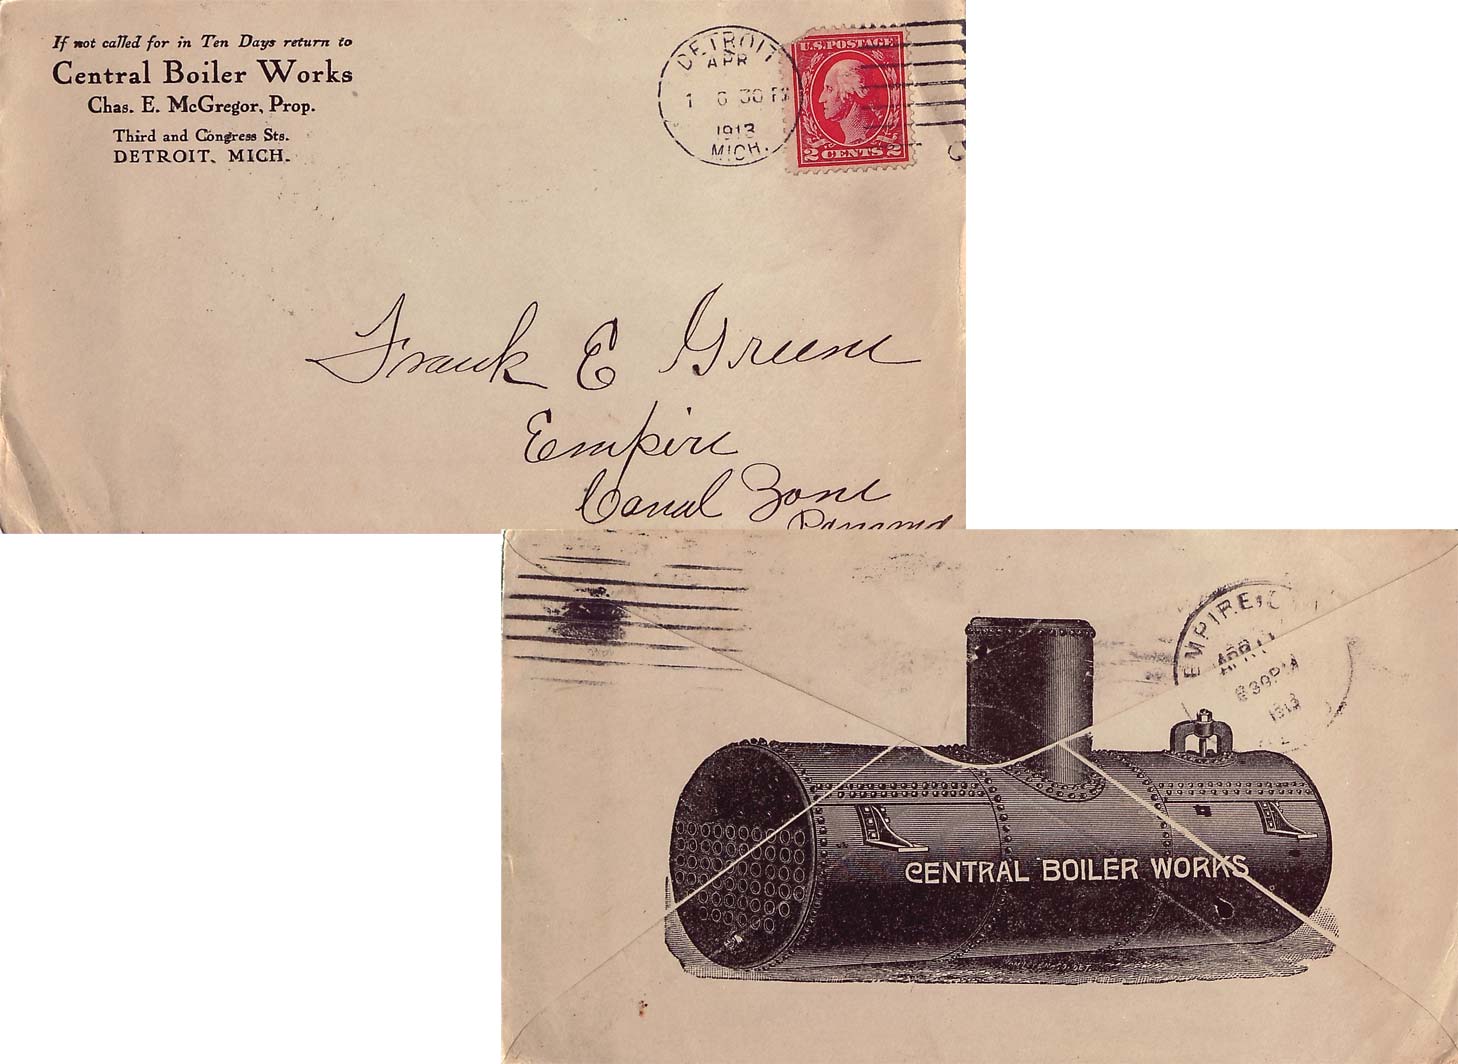 If not called for in Ten Days return to
Central Boiler Works
Chas. E. McGregor, Prop.
Third and Congress Sts.
DETROIT, MICH.
DETROIT
APR
1 6 30 P
1913
MICH.
U.S. POSTAGE
2 CENTS 2
Frank E Greene
Empire
Canal Zone
Panama
EMPIRE, C
APR 11
8 30 PM
1913
CENTRAL BOILER WORKS